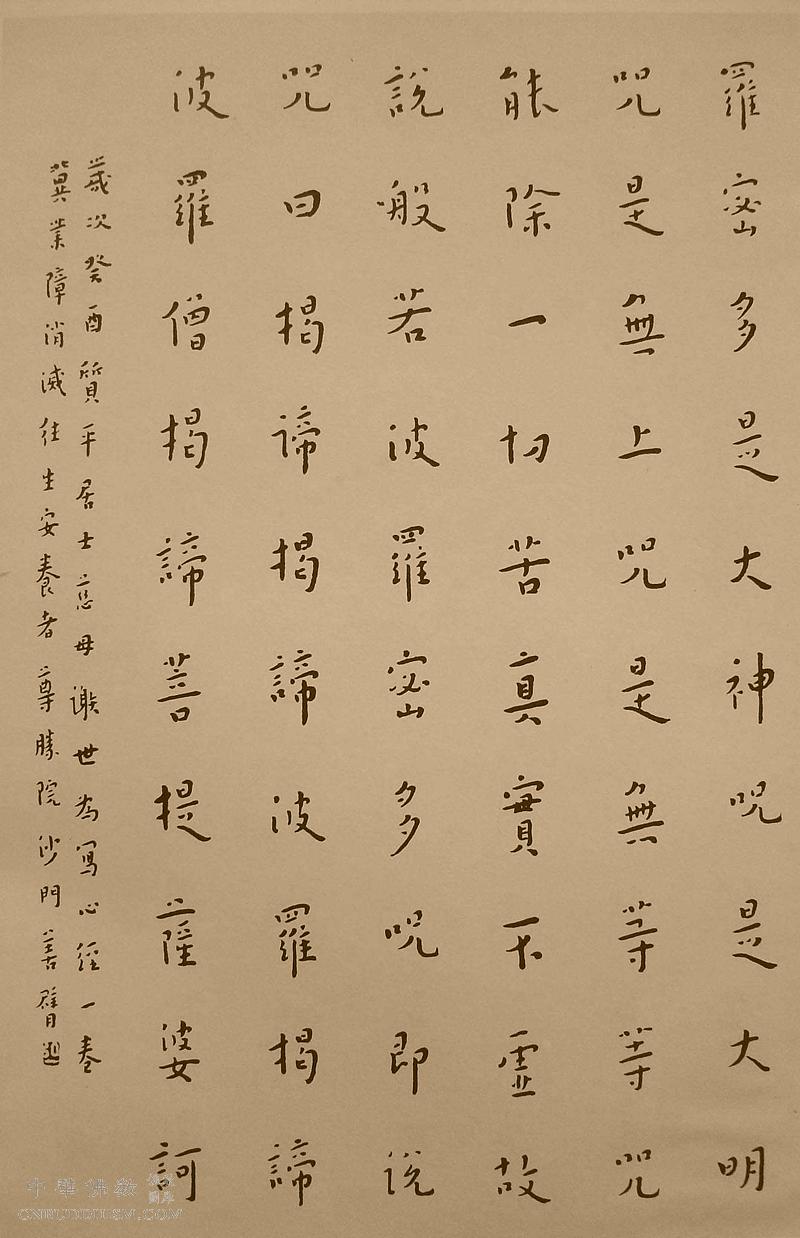 羅密多是大神呪是大明
呪是無上呪是無等等呪
能除一切苦真實不虛故
說般若波羅密多呪即说
呪曰揭諦揭諦波羅揭諦
波羅僧揭諦菩提薩婆訶
歲次癸酉質平居士慈母謝世為寫心經一卷
冀業障消滅往生安養者尊勝院沙門善臂
中華佛教
CNBUDDHISM.COM